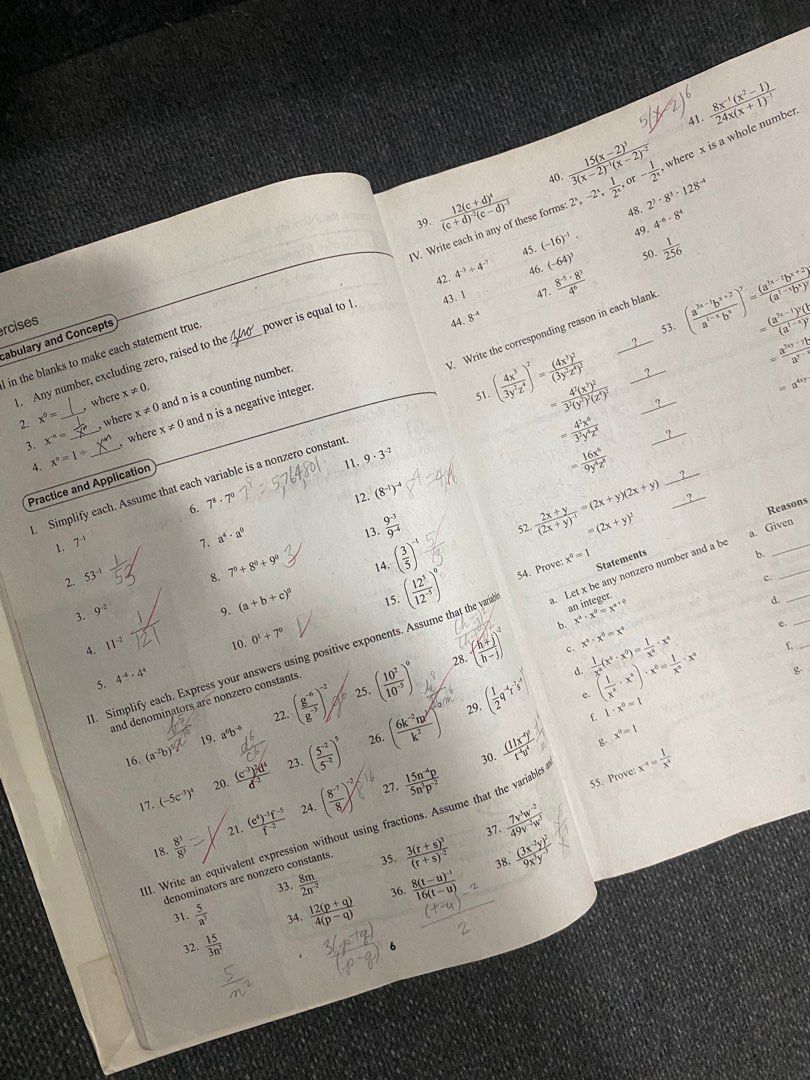 ercises
cabulary and Concepts
l in the blanks to make each statement true.
1. Any number, excluding zero, raised to the zero power is equal to 1.
2. x⁰ = 1, where x ≠ 0.
3. x⁻ⁿ = 1/xⁿ, where x ≠ 0 and n is a counting number.
4. xⁿ = 1 ÷ x⁻ⁿ, where x ≠ 0 and n is a negative integer.
Practice and Application
I. Simplify each. Assume that each variable is a nonzero constant.
1. 7⁻¹
2. 53⁻¹ 1/53
3. 9⁻²
4. 11⁻² 1/121
5. 4⁻⁴ · 4⁴
6. 7⁸ · 7⁰ 7⁸ = 5,764,801
7. a⁴ · a⁰
8. 7⁰ + 8⁰ + 9⁰ 3
9. (a + b + c)⁰
10. 0¹ + 7⁰ 1
11. 9 · 3⁻²
12. (8⁻¹)⁻⁴ 8⁴
13. 9⁻³/9⁻⁴
14. (3/5)⁻¹ 5/3
15. (12⁵/12⁻⁵)⁰
II. Simplify each. Express your answers using positive exponents. Assume that the variables
and denominators are nonzero constants.
16. (a⁻²b)
17. (−5c⁻³)⁴
18. 8³/8³ = 1
19. a⁶b⁻⁶
20. (c⁻³)²d⁴/d⁻²
21. (e⁴)⁻³f⁻⁵/f⁻²
22. (g⁻⁶/g⁻³)⁻² g⁶
23. (5⁻²/5⁻²)⁵
24. (8⁻⁷/8)⁻² 8¹⁶
25. (10²/10⁻⁵)⁰
26. (6k⁻²m/k²)
27. 15n⁻⁴p/5n³p⁻²
28. (h+j/h−j)
29. (1/2 q⁻⁴r⁷s
30. (11x⁻⁴)⁰/t⁻⁴u⁴
III. Write an equivalent expression without using fractions. Assume that the variables an
denominators are nonzero constants.
31. 5/a²
32. 15/3n² 5/n²
33. 8m/2n⁻²
34. 12(p + q)/4(p − q) 3(p+q)/(p−q)
35. 3(r + s)³/(r + s)⁻²
36. 8(t − u)⁻¹/16(t − u) (t−u)⁻²/2
37. 7v³w⁻²/49v⁻²w³
38. (3x⁻²y)²/9x³y⁻³
6
39. 12(c + d)⁴/(c + d)⁻²(c − d)⁻³
40. 15(x − 2)³/3(x − 2)⁻¹(x − 2)⁻² 5(x−2)⁶
41. 8x⁻¹(x² − 1)/24x(x + 1)⁻¹
IV. Write each in any of these forms: 2ˣ, −2ˣ, 1/2ˣ, or −1/2ˣ, where x is a whole number.
42. 4⁻³ ÷ 4⁻⁷
43. 1
44. 8⁻⁴
45. (−16)⁻¹
46. (−64)³
47. 8⁻⁵ · 8³/4⁶
48. 2³ · 8³ · 128⁻⁴
49. 4⁻⁶ · 8⁴
50. 1/256
V. Write the corresponding reason in each blank.
51. (4x³/3y²z⁴)² = (4x³)²/(3y²z⁴)² ?
= 4²(x³)²/3²(y²)²(z⁴)² ?
= 4²x⁶/3²y⁴z⁸ ?
= 16x⁶/9y⁴z⁸ ?
52. 2x + y/(2x + y)⁻¹ = (2x + y)(2x + y) ?
= (2x + y)² ?
53. (a³ˣ⁻¹bˣ⁺²/a¹⁻ˣbˣ)ʸ = (a³ˣ⁻¹bˣ⁺²)/(a¹⁻ˣbˣ)ʸ
54. Prove: x⁰ = 1
Statements
Reasons
a. Let x be any nonzero number and a be
an integer.
a. Given
b. xᵃ · x⁰ = xᵃ⁺⁰
b.
c. xᵃ · x⁰ = xᵃ
c.
d. 1/xᵃ (xᵃ · x⁰) = 1/xᵃ · xᵃ
d.
e. (1/xᵃ · xᵃ) · x⁰ = 1/xᵃ · xᵃ
e.
f. 1 · x⁰ = 1
f.
g. x⁰ = 1
g.
55. Prove: x⁻ᵃ = 1/xᵃ